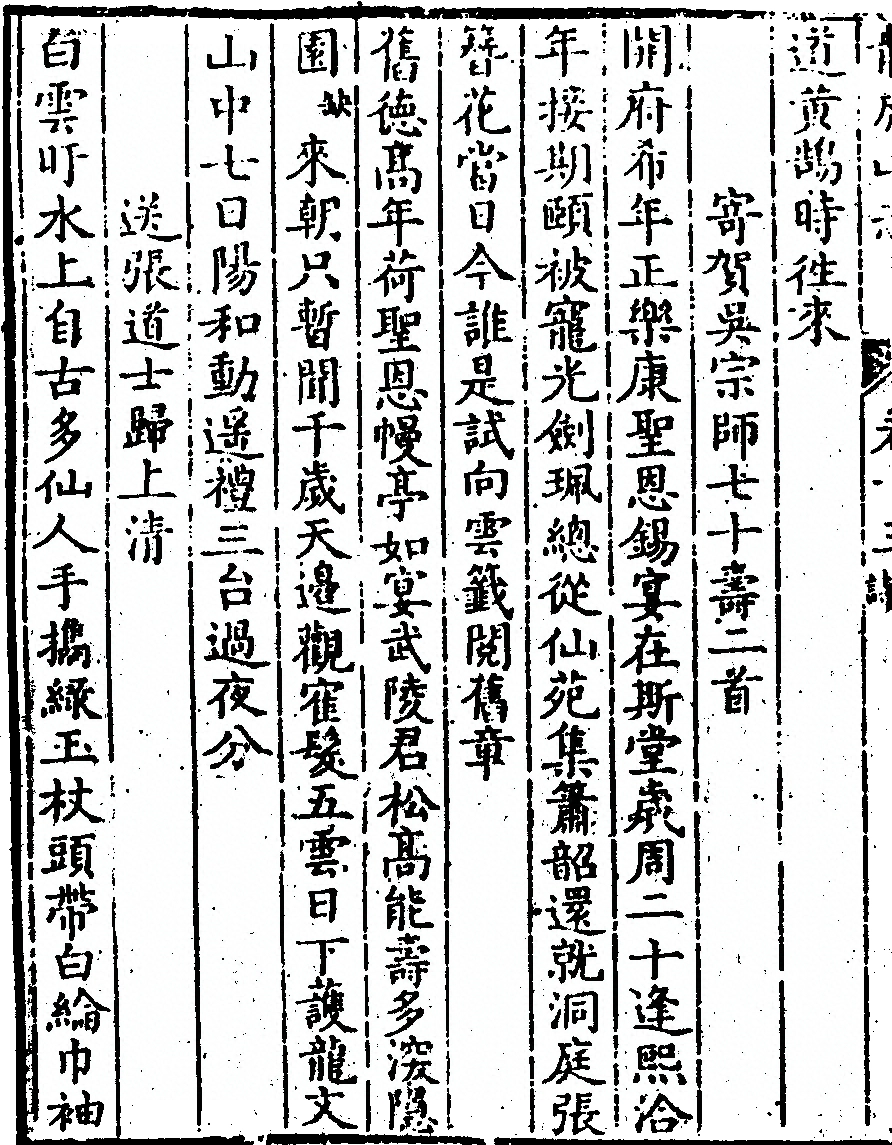 道黄鵠時徃來
寄賀吳宗師七十壽二首
開府希年正樂康聖恩錫宴在斯堂歲周二十逢熙洽
年接期頤被寵光劍珮總從仙苑集簫韶還就洞庭張
簪花當日今誰是試向雲籤閱舊章
舊德髙年荷聖恩幔亭如宴武陵君松髙能壽多深隠
園缺來朝只暫聞千歲天邉觀隺髮五雲日下護龍文
山中七日陽和動遥禮三台過夜分
送張道士歸上清
白雲吁水上自古多仙人手攜緑玉杖頭帶白綸巾袖